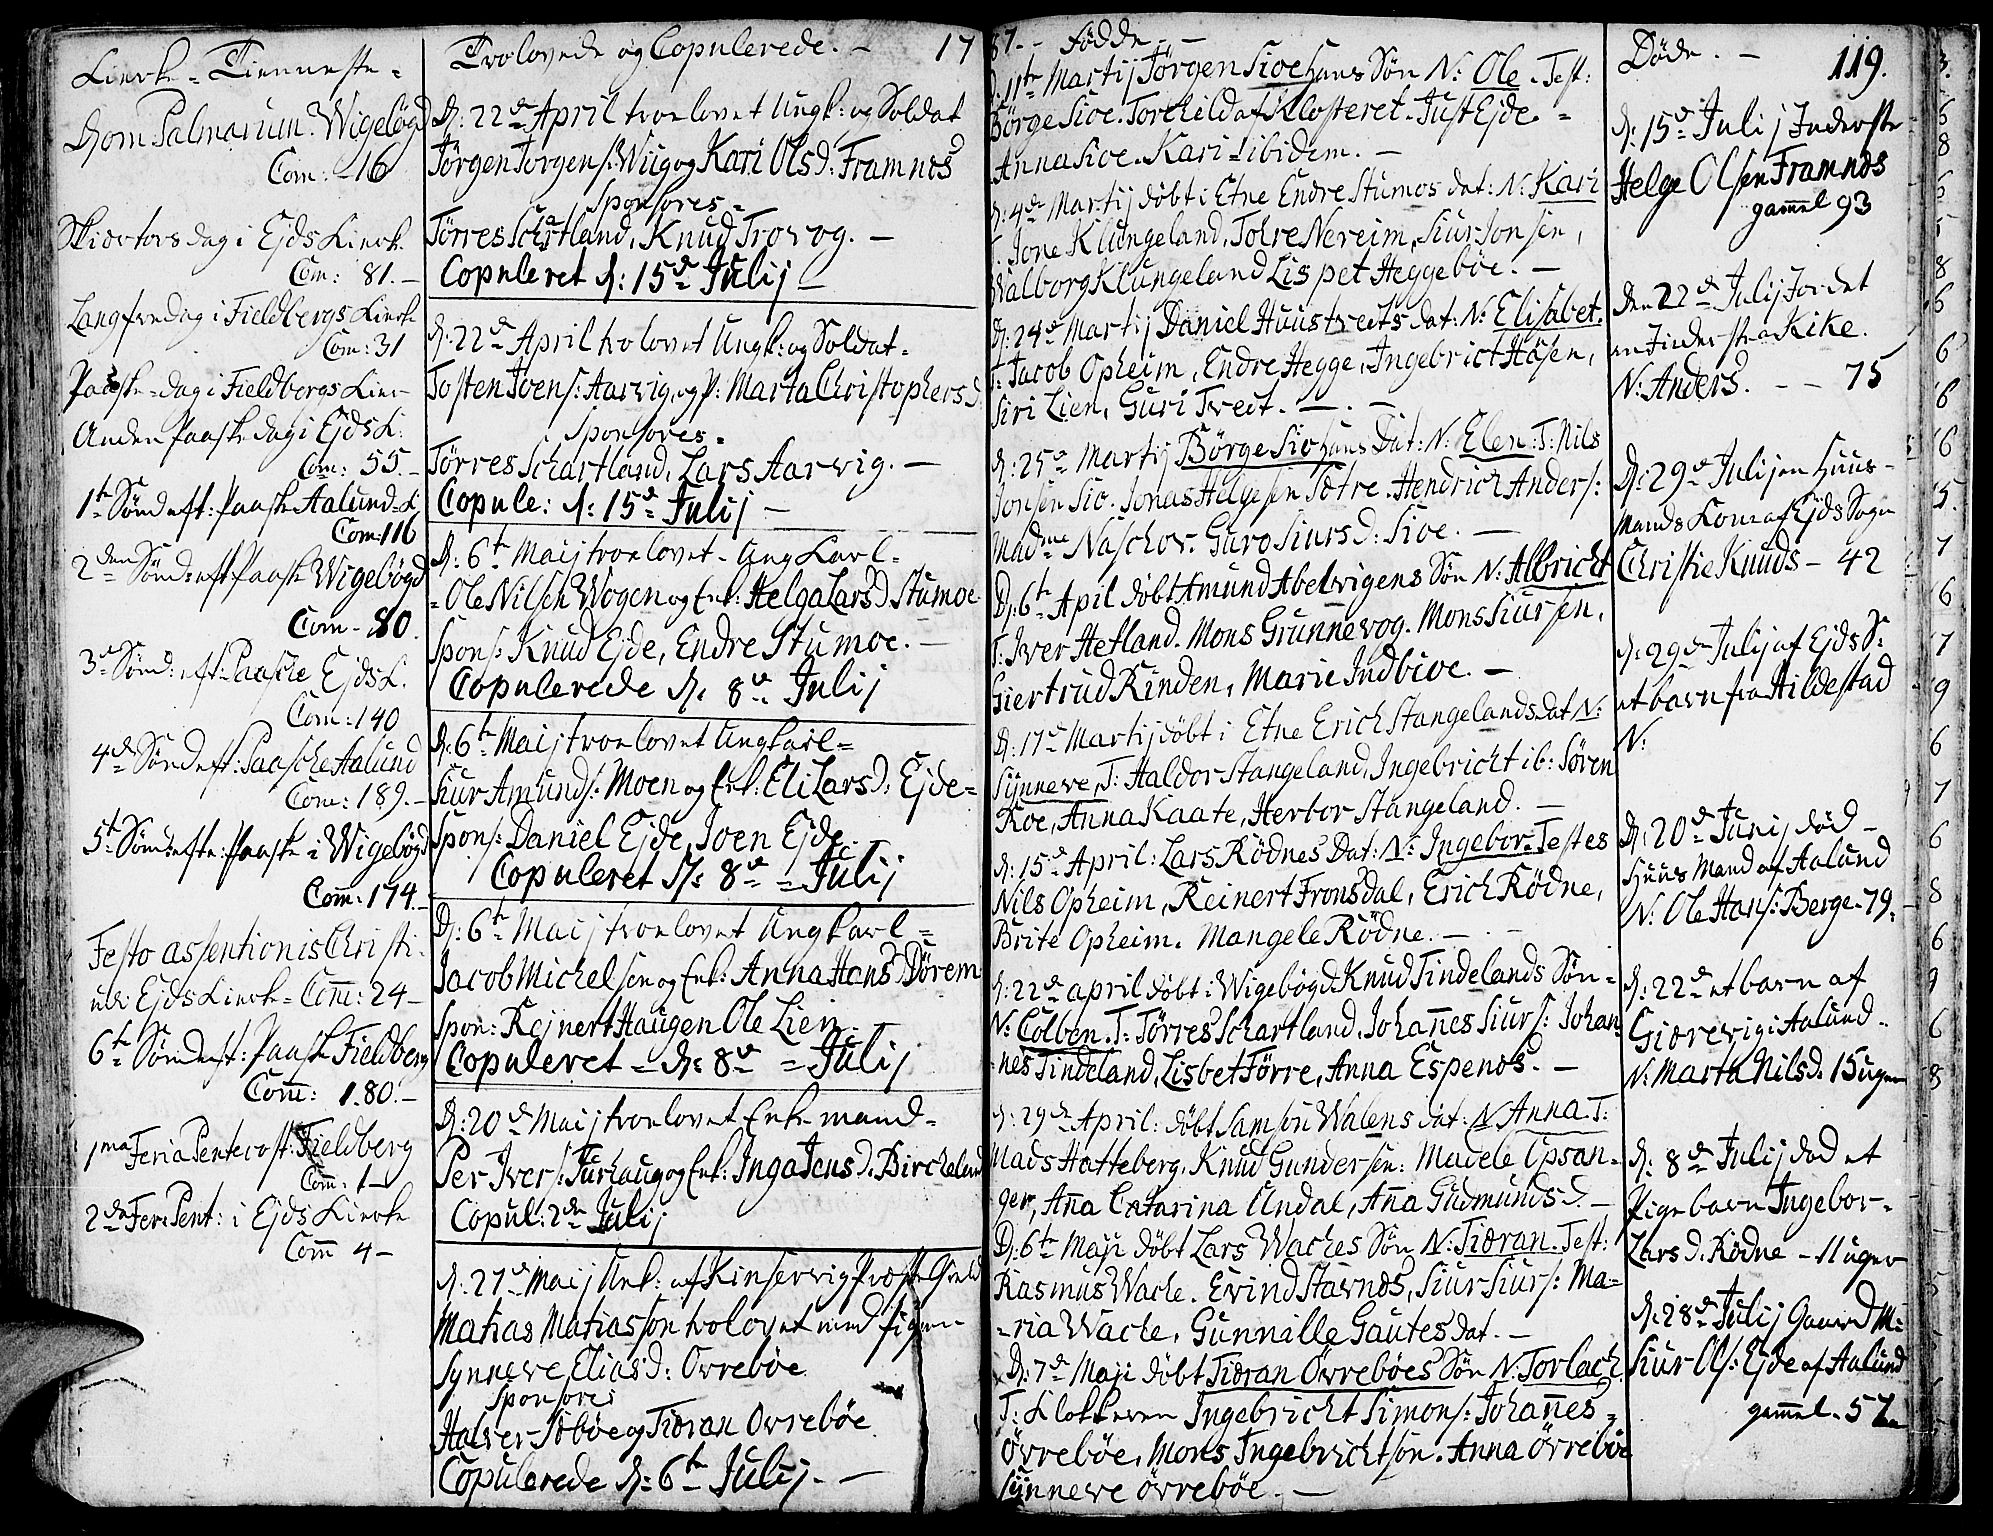 Kirke-Tienneste-
Dom Palmarum. Wigebøgd
Com: 16
Skiærtorsdag i Ejds Kirch
Com: 81.-
Langfredag i Fieldbergs Kirche
Com: 31
Paaske-dag i Fieldbergs Kir-
Anden Paaskedag i Ejds K:
Com: 55.-
1te Sönd eft: Paaske Aalund-K
Com: 116
2den Sönd: eft Paaske Wigebögd
Com- 80.
3de Sönd: eft Paaske Ejds K.
Com: 140
4de Sönd eft: Paasche Aalund
Com: 189.-
5te Sönd: efte: Paaske i Wigebögd
Com: 174.-
Festo assentionis Christi
udi Ejds Kirche- Com: 24-
6te Sönd eft: Paaske Fieldberg
Com: 180.-
1ma Feria Pentecost: Fieldberg
Com: 1-
2de Fer: Pent: i Ejds Kirche
Com 4-
Trolovede og Copulerede.- 17
D: 22de April troelovet Ungk: og Soldat
Jörgen Jorgens: Wiig og Kari Olsd: Framnes
Sponsores-
Törres Schartland, Knud Trovog.-
Copuleret d: 15de Julij
D: 22de April trolovet Ungk: og Soldat-
Tosten Ivens: Aarvig, og P: Marta Christophersd
Sponsores-
Törres Schartland, Lars Aarvig.-
Copule: d: 15de Julij-
D: 6te Maij troelovet- Ung Karl-
-Ole Nilsen Wogen og Enk: Helga Larsd. Stumoe
Spons: Knud Ejde, Endre Stumoe.-
Copulerede d. 8de Julij
D: 6te Maij troelovet Ungkarl-
Siur Amunds: Moen og Enk: Eli Larsd: Ejde-
Spons: Daniel Ejde, Joen Ejde
Copuleret d: 8de - Julij
D: 6te Maij troelovet Ungkarl-
Jacob Michelsen og Enk: Anna Hans Dörem
Spon: Rejnert Haugen Ole Lien-
Copuleret - d: 8de - Julij
D: 20de Maij troelovet Enke mand-
Per Ivers: Turhaug og Enk: Inga Jensd. Bircheland
Copul: 2de Julij
D: 27de Maij af Kinservig Præste Gield
Matias Matiasson trolovet med Pigen-
Synneve Eliasd: Ovrebøe
Sponsores
Halver Söbøe og Tidran Ovrebøe
Copulerede d: 6te Julij.-
87.- Födde.-
D. 11te Martij Jörgen Sioe hans Sön N: Ole- Test:
Börge Sioe. Torchild af Klosteret. Just Ejde.-
Anna Sioe. Kari ibidem.-
D: 4de Martij döbt i Etne Endre Stumos Dat: N: Kari
T. Jone Klungeland, Tohre Nereim, Siur Jonsen,
Walborg Klungeland Lispet Heggebøe.-
D: 24de Martij Daniel Huustveits dat: N: Elisabet.
T: Jacob Opheim, Endre Hegge, Ingebricht Häsen,
Siri Lien, Guri Tveit.-
D: 25de Martij Börge Sio hans Dat: N: Elen: T: Nils
Jonsen Sio. Jonas Helgesen Sætre. Hendrich Anders:
Madme Naschov. Guro Siursd: Sioe.-
D: 6te April döbt Amund Abelvigens Sön N: Albricht
T: Iver Hetland. Mons Grunnevog. Mons Siursen,
Giertrud Rinden, Marie Indbioe.-
D: 17de Martij döbt i Etne Erich Stangelands dat N:
Synneve, T: Haldor Stangeland, Ingebricht ib: Sören
Roe, Anna Kaate, Herbor Stangeland.-
D: 15de April: Lars Rödnes Dat: N: Ingebor- Testes
Nils Opheim, Reinert Fronsdal, Erich Rödne,
Brite Opheim. Mangele Rödne.-
D: 22de april döbt i Wigebögd Knud Tindelands Sön-
N: Colben. T: Törres Schartland, Johanes Siurs: Johan-
-nes Tindeland, Lisbet Förre, Anna Espenos.-
D: 29de April: döbt Samson Walens dat: N: Anna. T:
Mads Hatteberg. Knud Gundersen: Madele Opsan-
ger, Ana Catarina Undal, Ana Gudmundsd.-
D: 6te Maji döbt Lars Waches Sön N: Tidran. Test:
Rasmus Wache. Evind Stavnds, Siur Siurs: Ma-
-ria Wache, Gunnille Gautesdat.-
D: 7de Maji döbt Tidran Övrebøes Sön N: Torlach
T: Klokkeren Ingebricht Simons: Johanes-
Övrebøe, Mons Ingebrichtson. Anna Övrebøe
Synneve Övrebøe.-
Döde.- 119.
D: 15de Julij Inderste
Helge Olsen Framnæs
gammel 93
Den 22de Julij Jordet
en Inderste Kike.
N: Anders.-- 75
D: 29de Julij en Huus-
mands Kone af Ejds Sogn
Christie Knuds- 42
D. 29de Julij af Ejds S:
et barn fra Hildestad
N:
D: 20de Junij död-
Huus Mand af Aalund
N: Ole Hans: Berge- 79.
D: 22de et barn af
Giærevig i Aalund-
N: Marta Nilsd. 15 uger
D: 8de Julij död et
Pige barn Ingebor-
Larsd. Rödne- 11 uger
D: 28de Julij Gaard M:
Siur Ols: Ejde af Aalund
gammel- 57